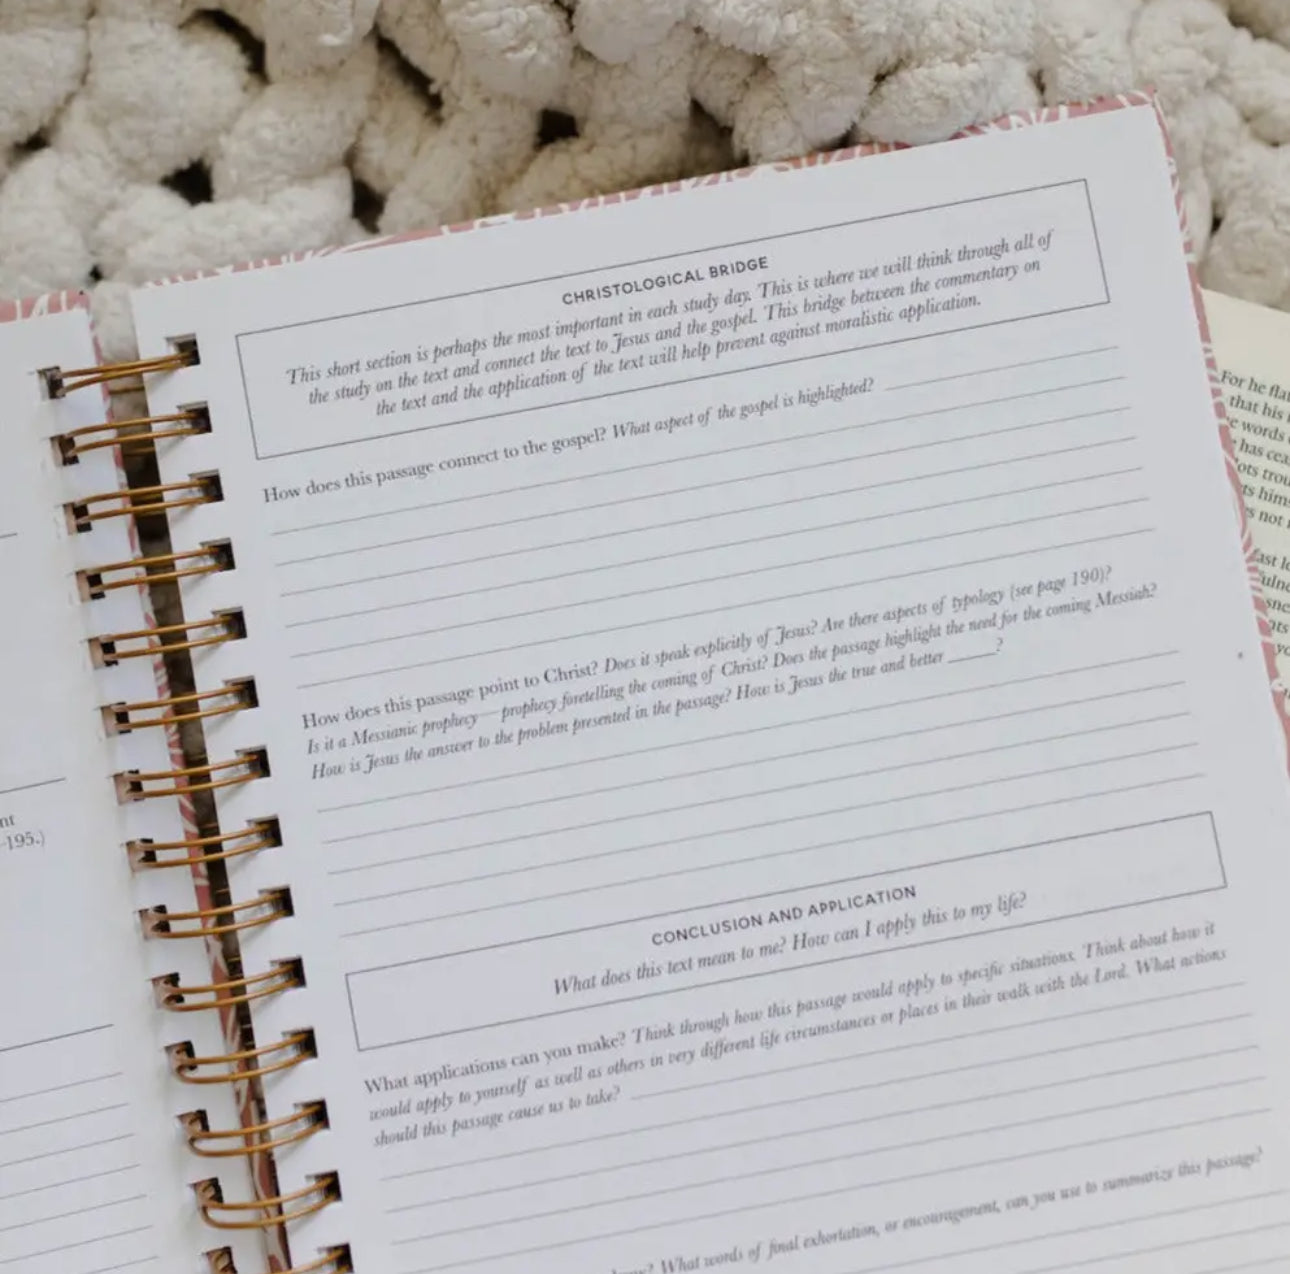 CHRISTOLOGICAL BRIDGE
This short section is perhaps the most important in each study day. This is where we will think through all of
the study on the text and connect the text to Jesus and the gospel. This bridge between the commentary on
the text and the application of the text will help prevent against moralistic application.
How does this passage connect to the gospel? What aspect of the gospel is highlighted?
How does this passage point to Christ? Does it speak explicitly of Jesus? Are there aspects of typology (see page 190)?
Is it a Messianic prophecy—prophecy foretelling the coming of Christ? Does the passage highlight the need for the coming Messiah?
How is Jesus the answer to the problem presented in the passage? How is Jesus the true and better _____?
CONCLUSION AND APPLICATION
What does this text mean to me? How can I apply this to my life?
What applications can you make? Think through how this passage would apply to specific situations. Think about how it
would apply to yourself as well as others in very different life circumstances or places in their walk with the Lord. What actions
should this passage cause us to take?
What words of final exhortation, or encouragement, can you use to summarize this passage?
nt
-195.)
For he flat
that his
words
has cea
ots trou
ts hims
s not